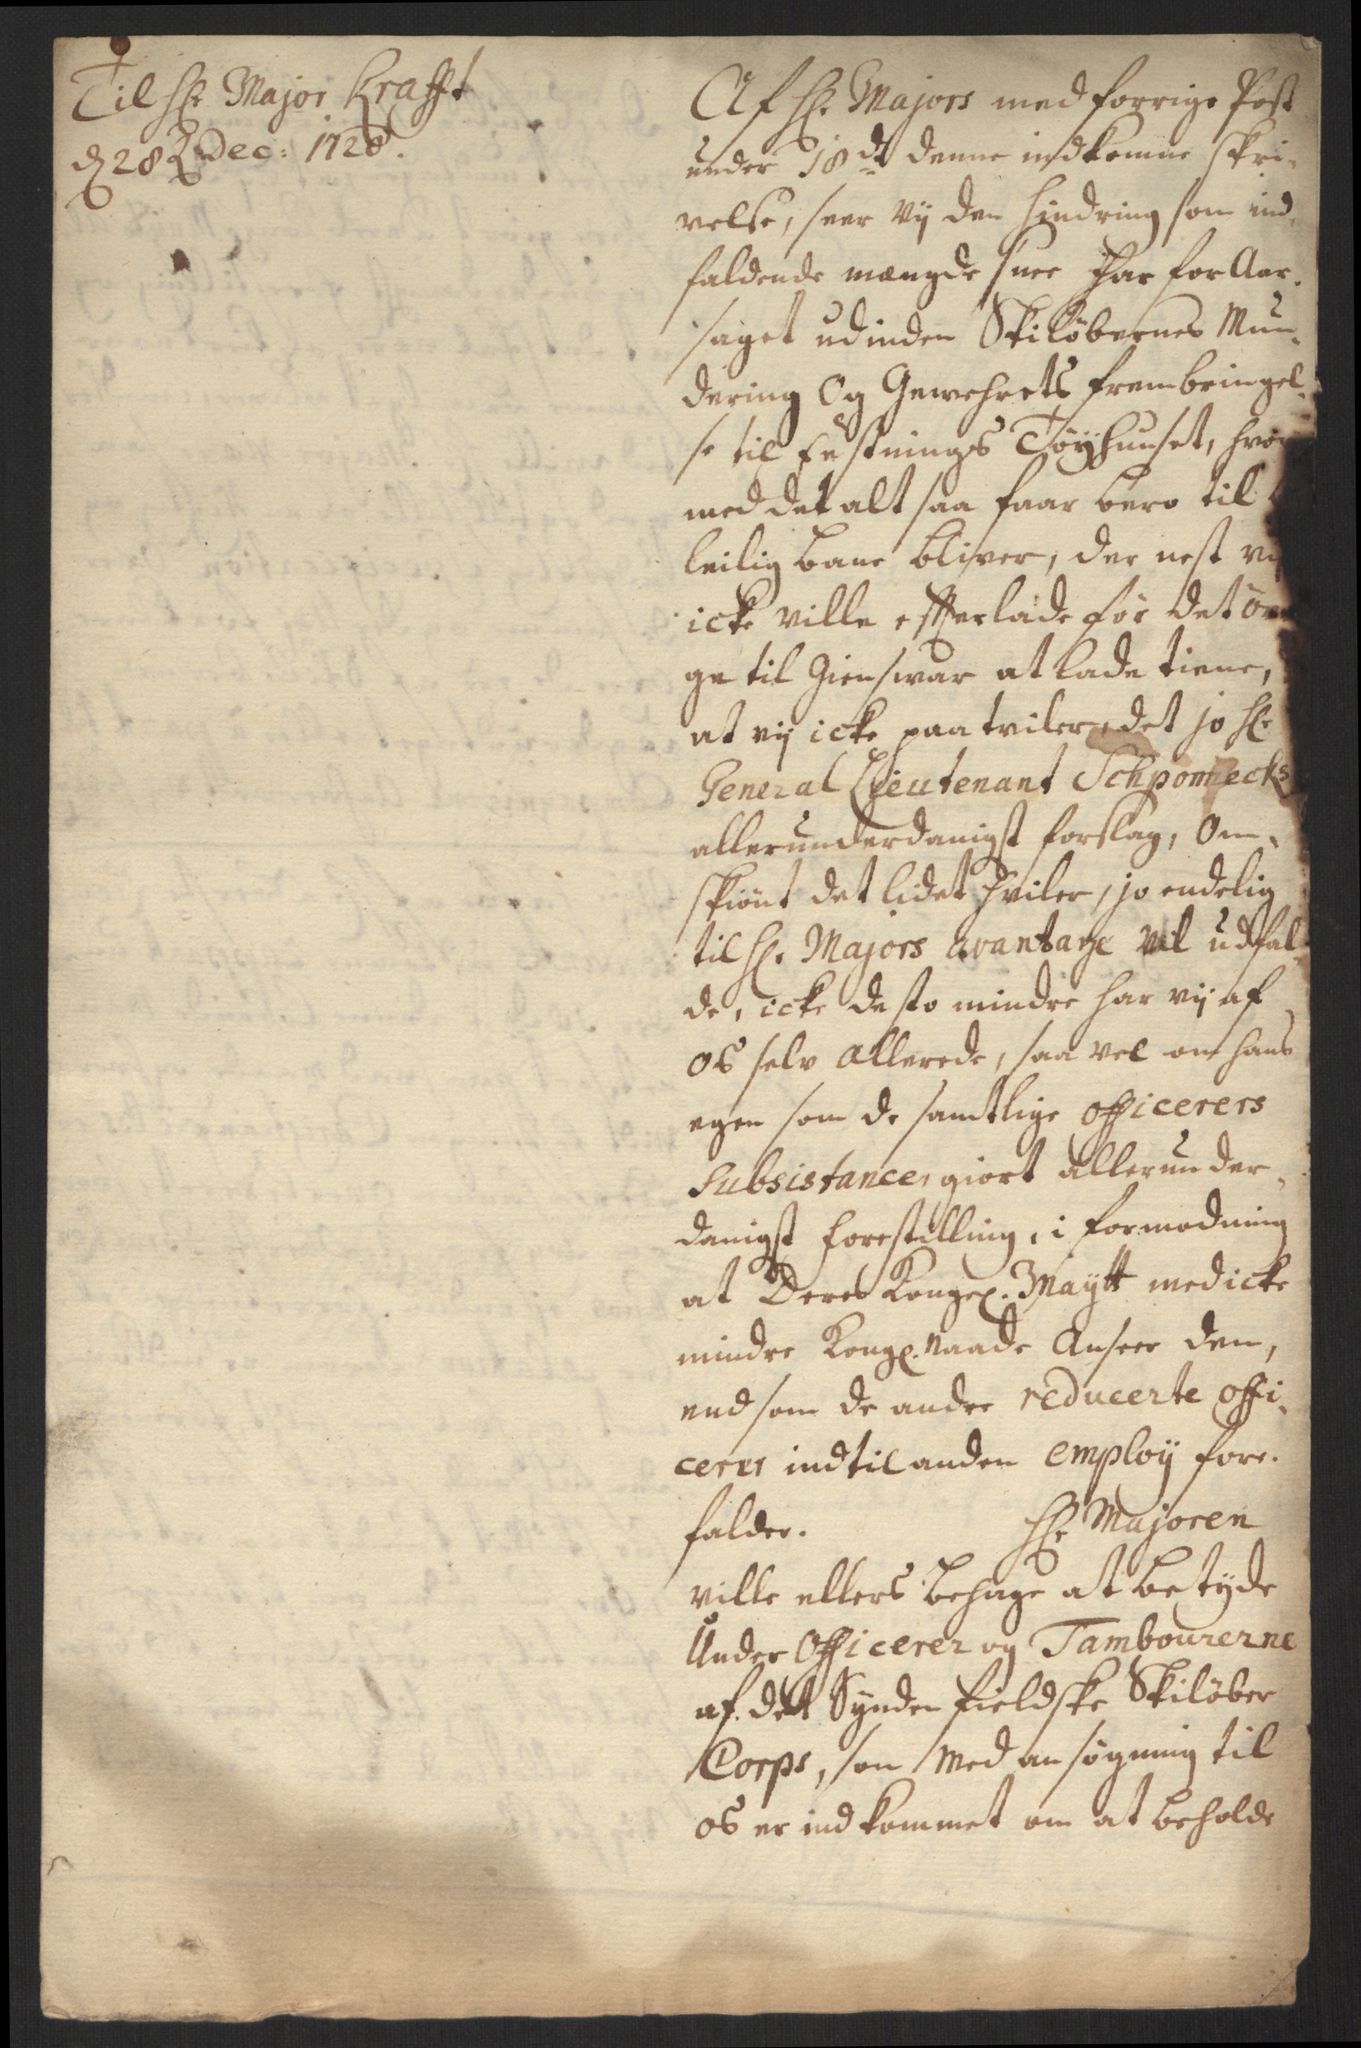 Til Hr Major Krafft
d 28 Dec: 1728.
Af Hr. Majors med forrige Post
under 18dt denne indkomne skri-
velse, seer Vij den Hindring som ind-
faldende mængde snee har for Aar-
saget udinden Skilöbernes Mun-
dering Og Gewehrets frembringel-
se til Festnings Töyhuuset, hvor
med det alt saa faar bero til
leilig bane bliver, der nest vij
icke ville efferlade for det öv
ge til Giensvar at lade tiene,
at vij icke paatviler, det jo Hr
General Lieutenant Schponnecks
allerunderdanigst forslag, Om-
skiönt det lidet hviler, jo endelig
til Hr. Majors avantage vil udfal-
de, icke desto mindre har vij af
os selv allerede, saa vel om hans
egen som de samtlige officerers
Subsistance, giort allerunder-
danigst forestilling, i formodning
at Deres Kongel. Maytt med icke
mindre Kongl. Naade Anseer dem,
end som de andre reducerte offi-
cerer indtil anden employ fore-
falder. Hr Majoren
ville ellers behage at betyde
Under Officerer og Tambourerne
af det Synden fieldske Skilöber
Corps, som med ansögning til
os er indkommet om at beholde